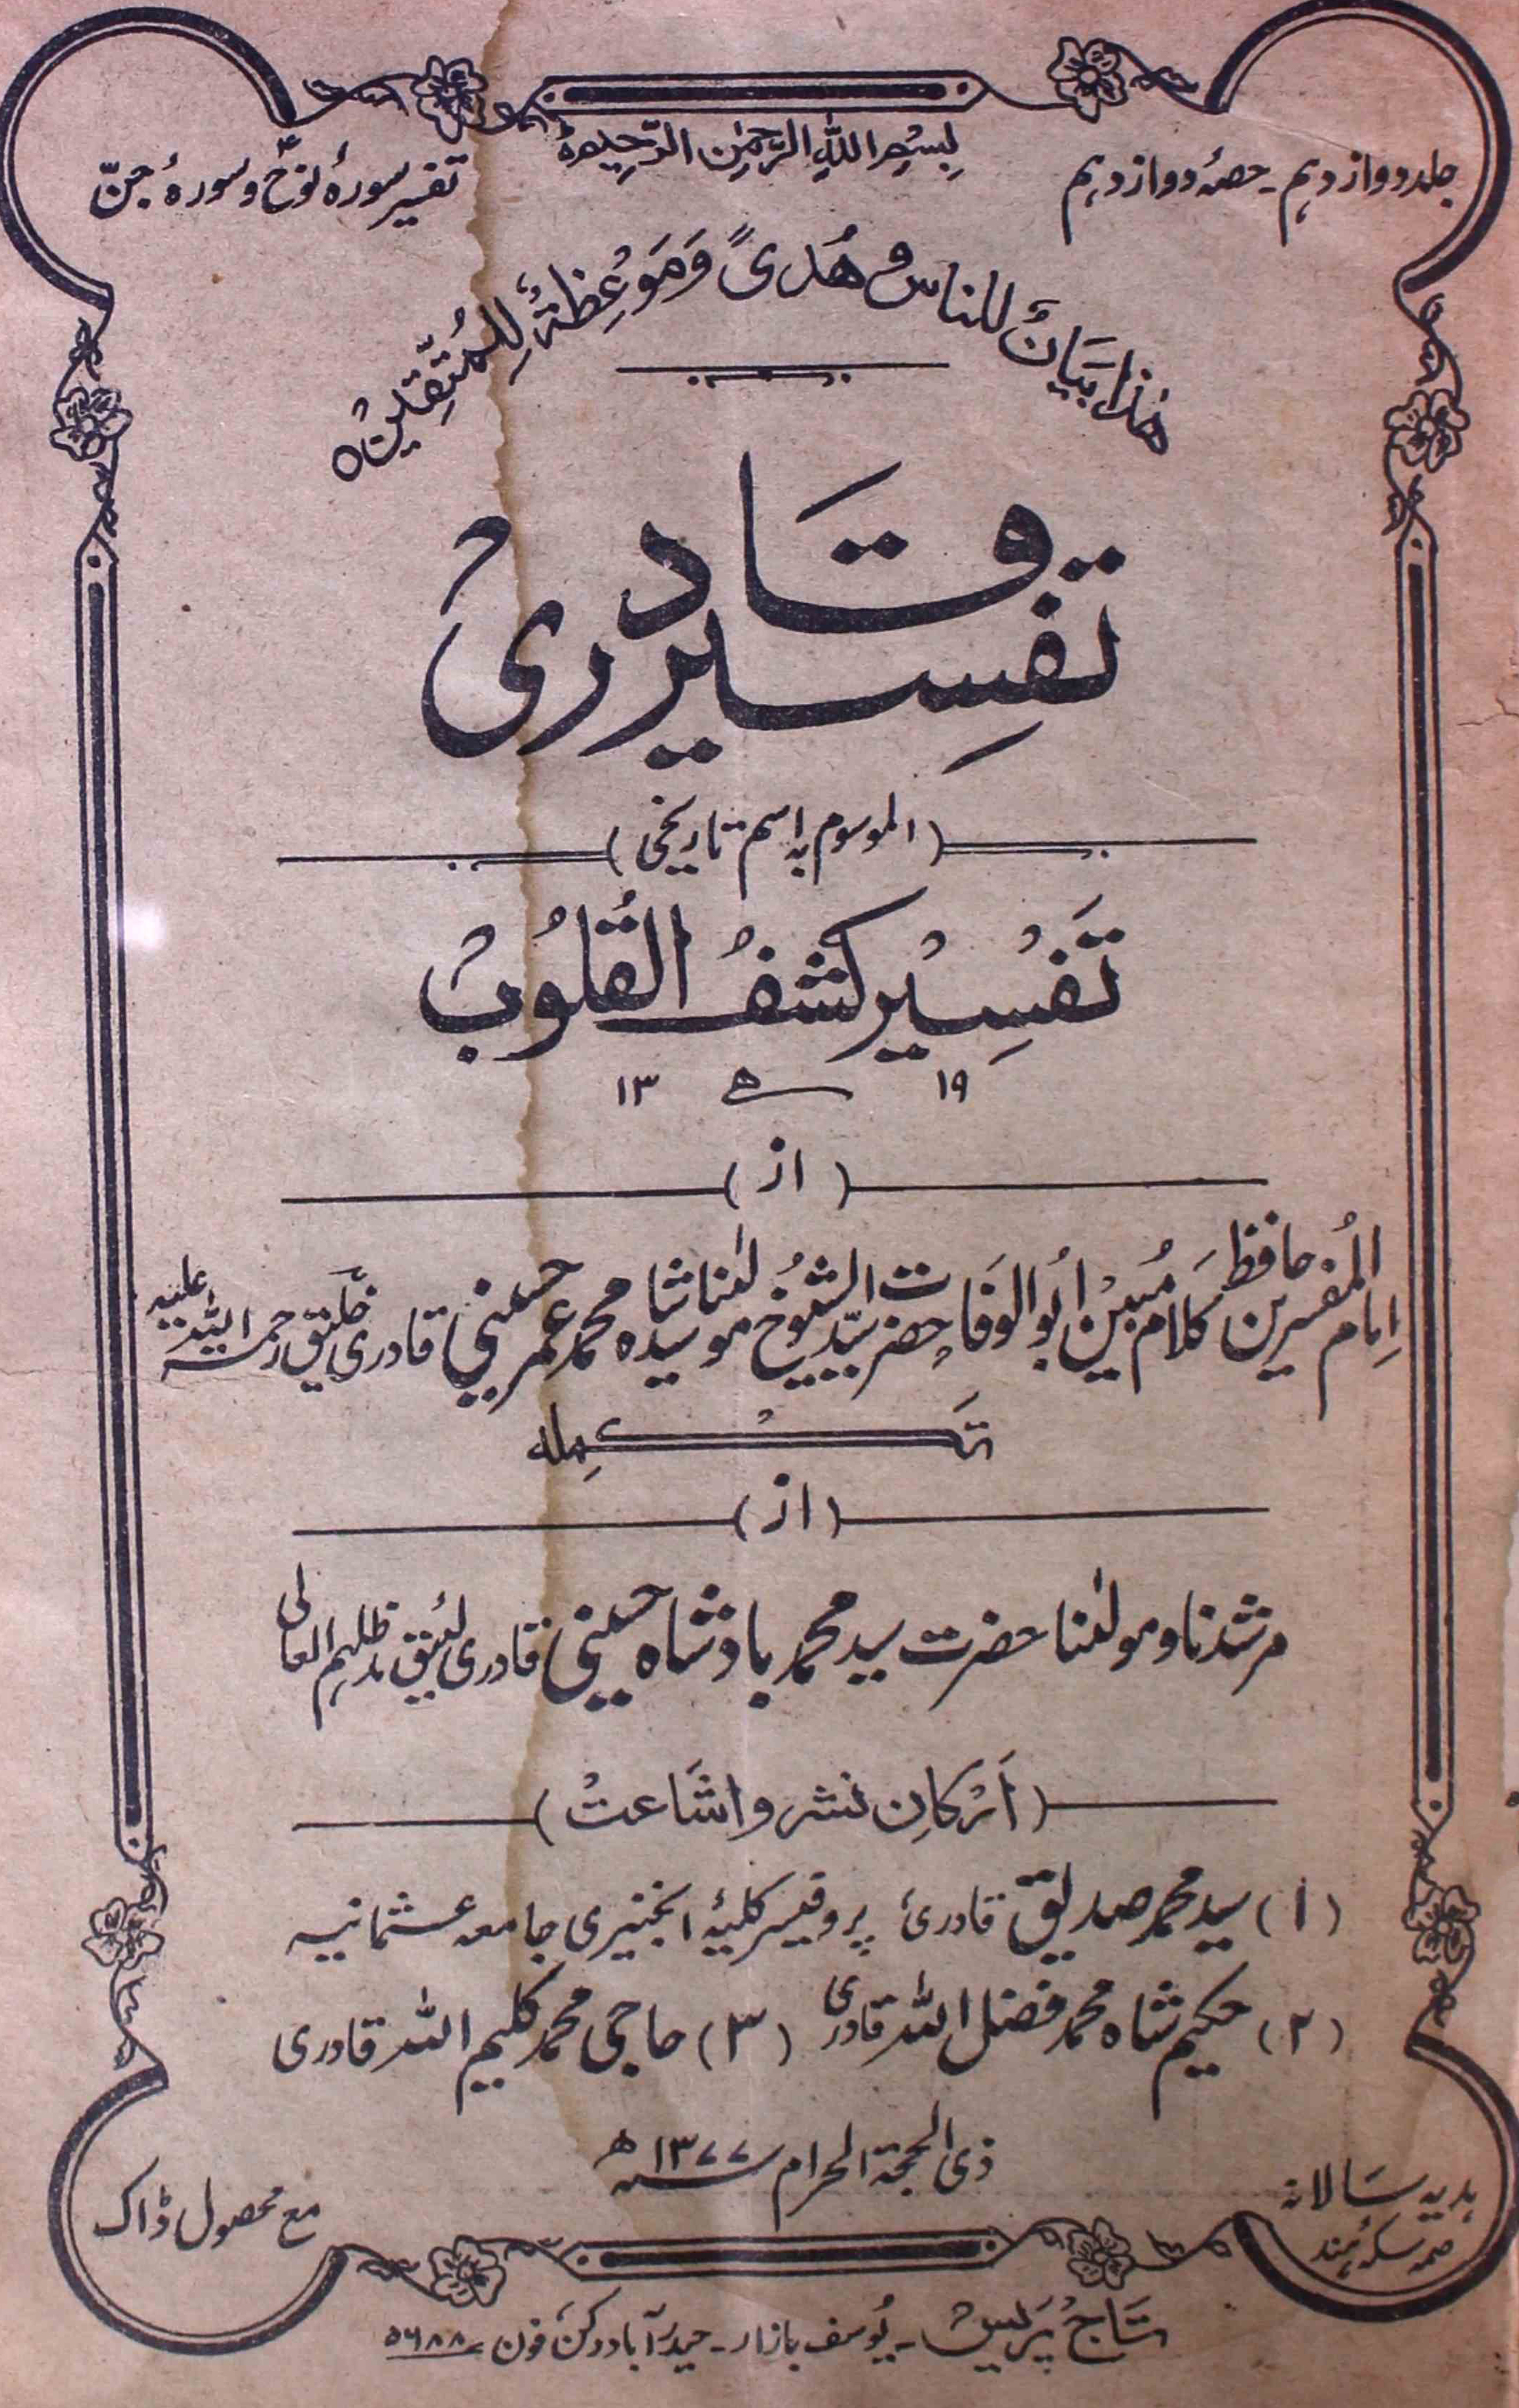 بِسْمِ اللّٰہِ الرَّحْمٰنِ الرَّحِیْمِ
جلد دوازدہم - حصۂ دوازدہم
تفسیر سورۂ نوحؑ و سورۂ جنّ
ھٰذا بَیَانٌ للناس و ھُدیً وَمَوْعِظَۃٌ لِلْمُتَّقِیْنَ
تفسیر قادری
(الموسوم بہ اسم تاریخی)
تَفْسِیْر کَشْفُ الْقُلُوْبْ
۱۹ ھ ۱۳
(از)
اِمام المُفسرین حافظ کلام مُبین اَبُوالوَفا حضرت سیّد الشیُوخ مولٰنا سید شاہ محمد عمر حسینی قادری خلیق رحمۃ اللہ علیہ
تَکْمِلہ
(از)
مرشدنا و مولٰنا حضرت سید محمد بادشاہ حسینی قادری لئیق مدظلہم العالی
(اَرْکانِ نشر و اشَاعتْ)
(۱) سید محمد صدیق قادری پروفیسر کلیۂ انجنیری جامعہ عثمانیہ
(۲) حکیم شاہ محمد فضل اللہ قادری (۳) حاجی محمد کلیم اللہ قادری
ذی الحجۃ الحرام سنہ ۱۳۷۷ ھ
ہدیہ سَالانہ
سکۂ ہند
مع محصول ڈاک
تَاج پَریسْ - یُوسف بازار - حیدرآباد دکن فون ۵۶۸۸